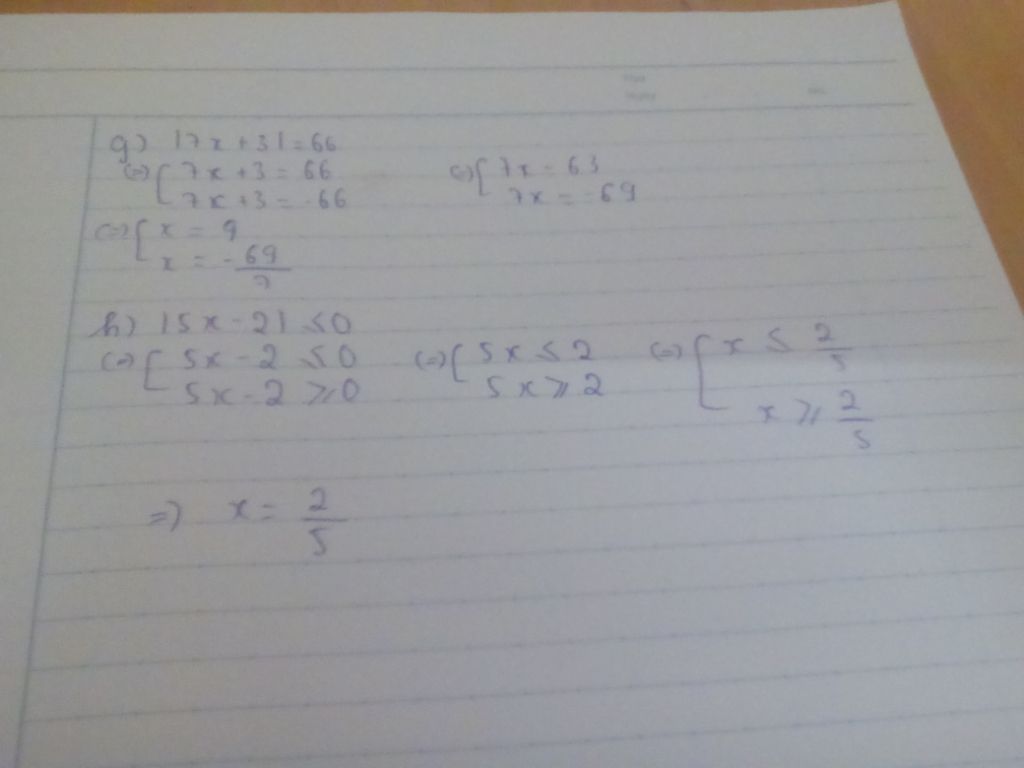 g) |7x + 3| = 66
<=> [ 7x + 3 = 66 <=> [ 7x = 63
7x + 3 = -66 7x = -69
<=> [ x = 9
x = -69/7
h) |5x - 2| ≤ 0
<=> [ 5x - 2 ≤ 0 <=> [ 5x ≤ 2 <=> [ x ≤ 2/5
5x - 2 ≥ 0 5x ≥ 2 x ≥ 2/5
=> x = 2/5